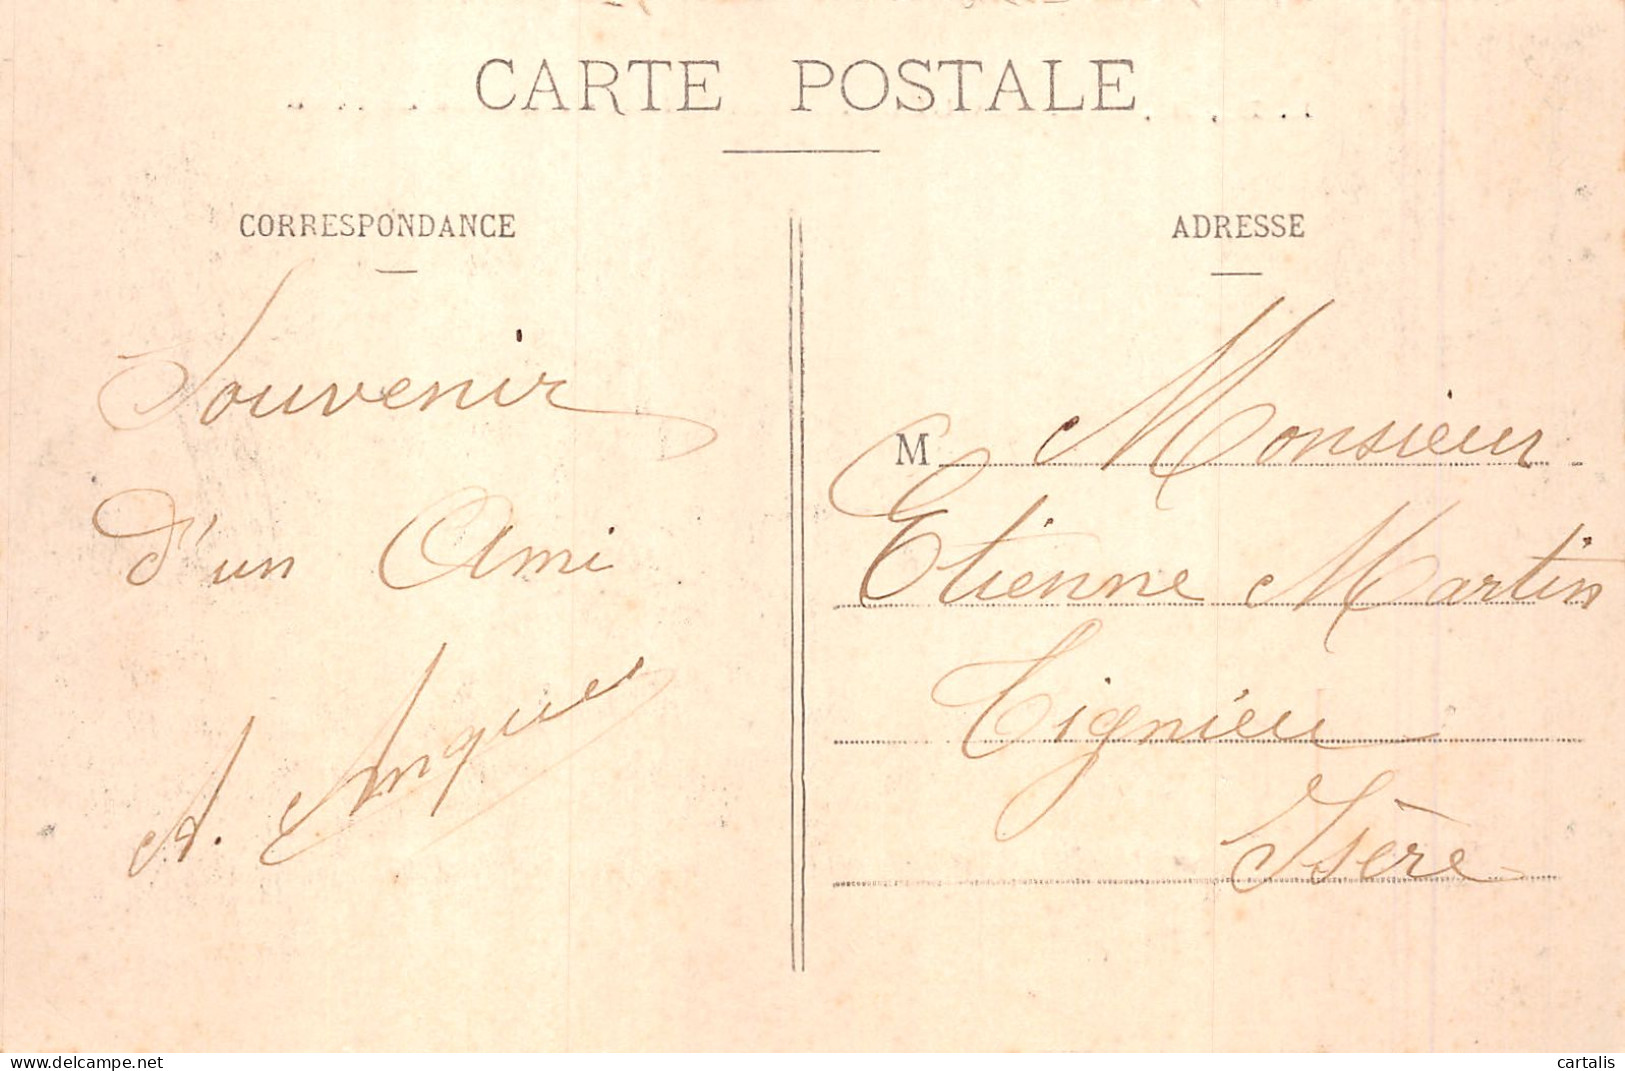 CARTE POSTALE
CORRESPONDANCE
Souvenir
d'un Ami
ADRESSE
M Monsieur
Etienne Martin
Tignieu
Isère
www.delcampe.net
cartalis